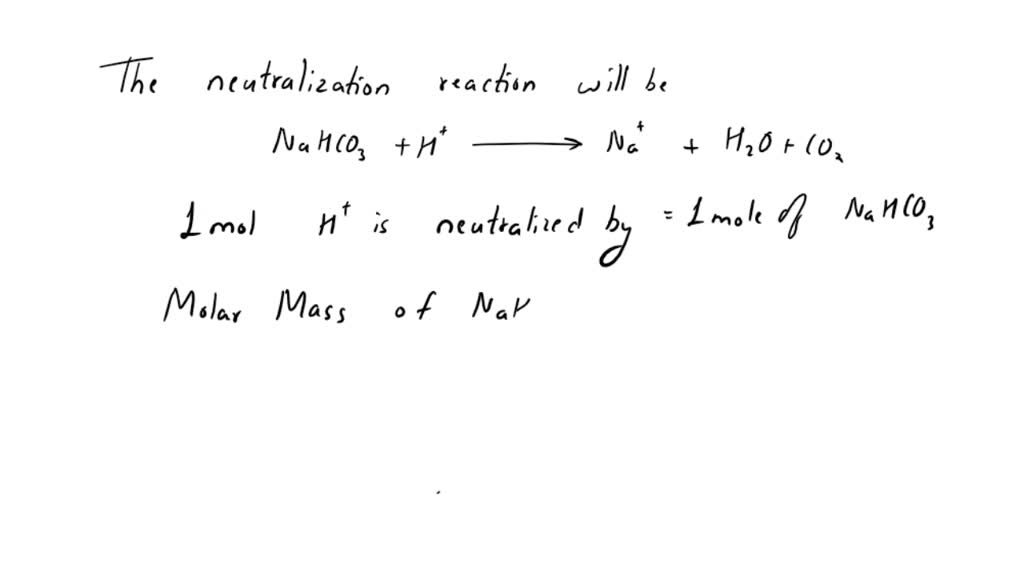 The neutralization reaction will be
NaHCO₃ + H⁺ ⟶ Na⁺ + H₂O + CO₂
1 mol H⁺ is neutralized by = 1 mole of NaHCO₃
Molar Mass of Na